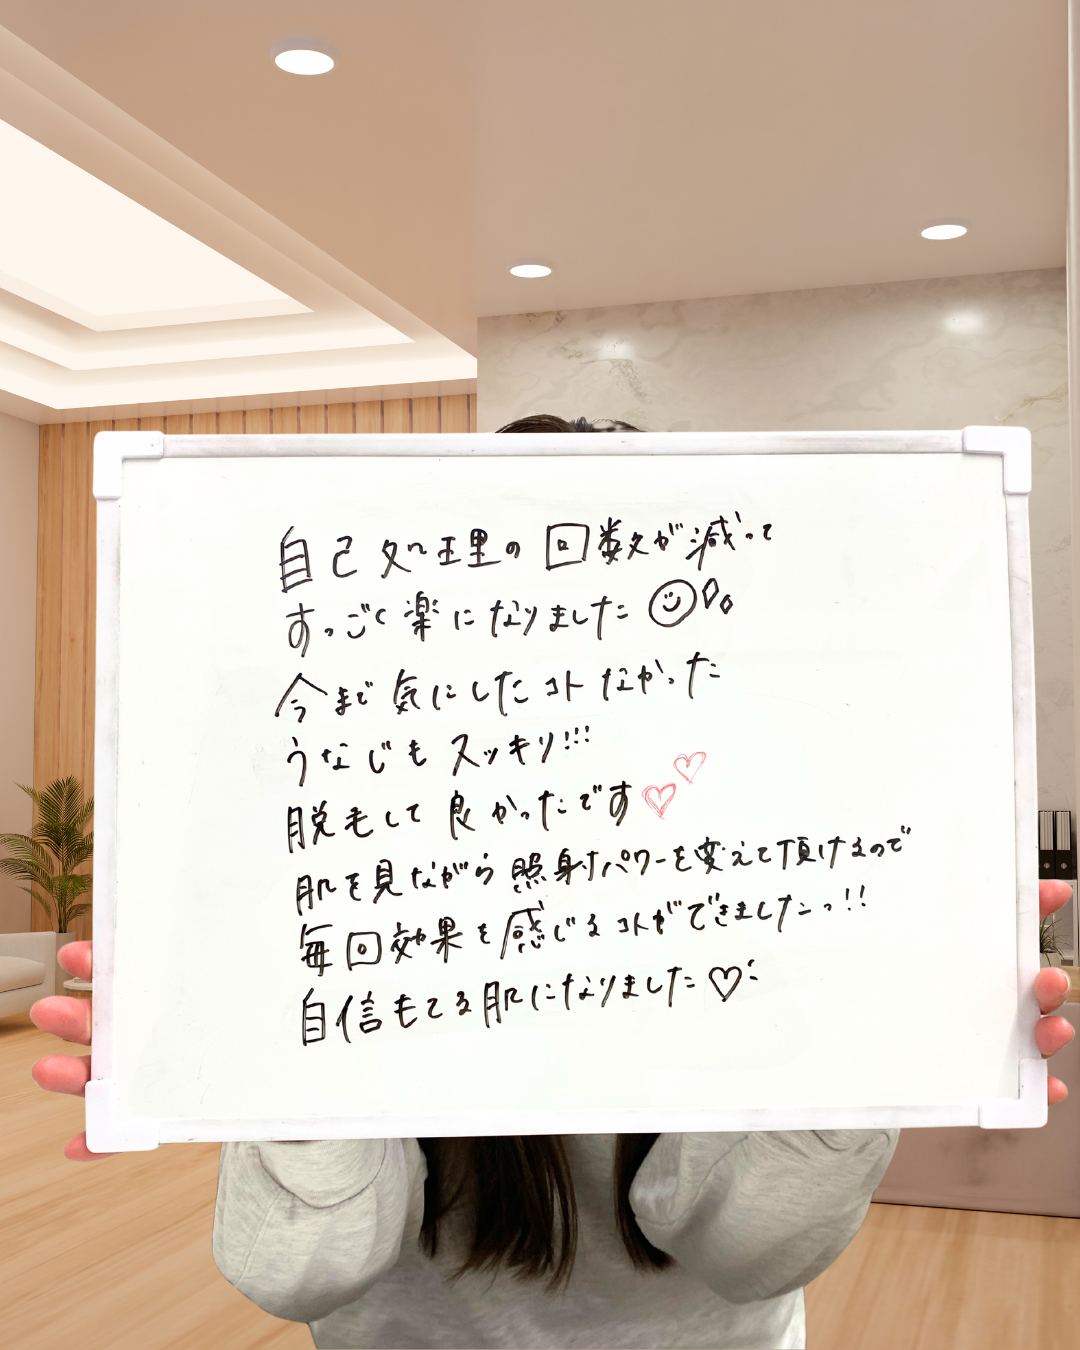 自己処理の回数が減って
すっごく楽になりました
今まで気にしたコトなかった
うなじもスッキリ!!!
脱毛して良かったです♡♡
肌を見ながら照射パワーを変えて頂けるので
毎回効果を感じるコトができましたっ!!
自信もてる肌になりました♡